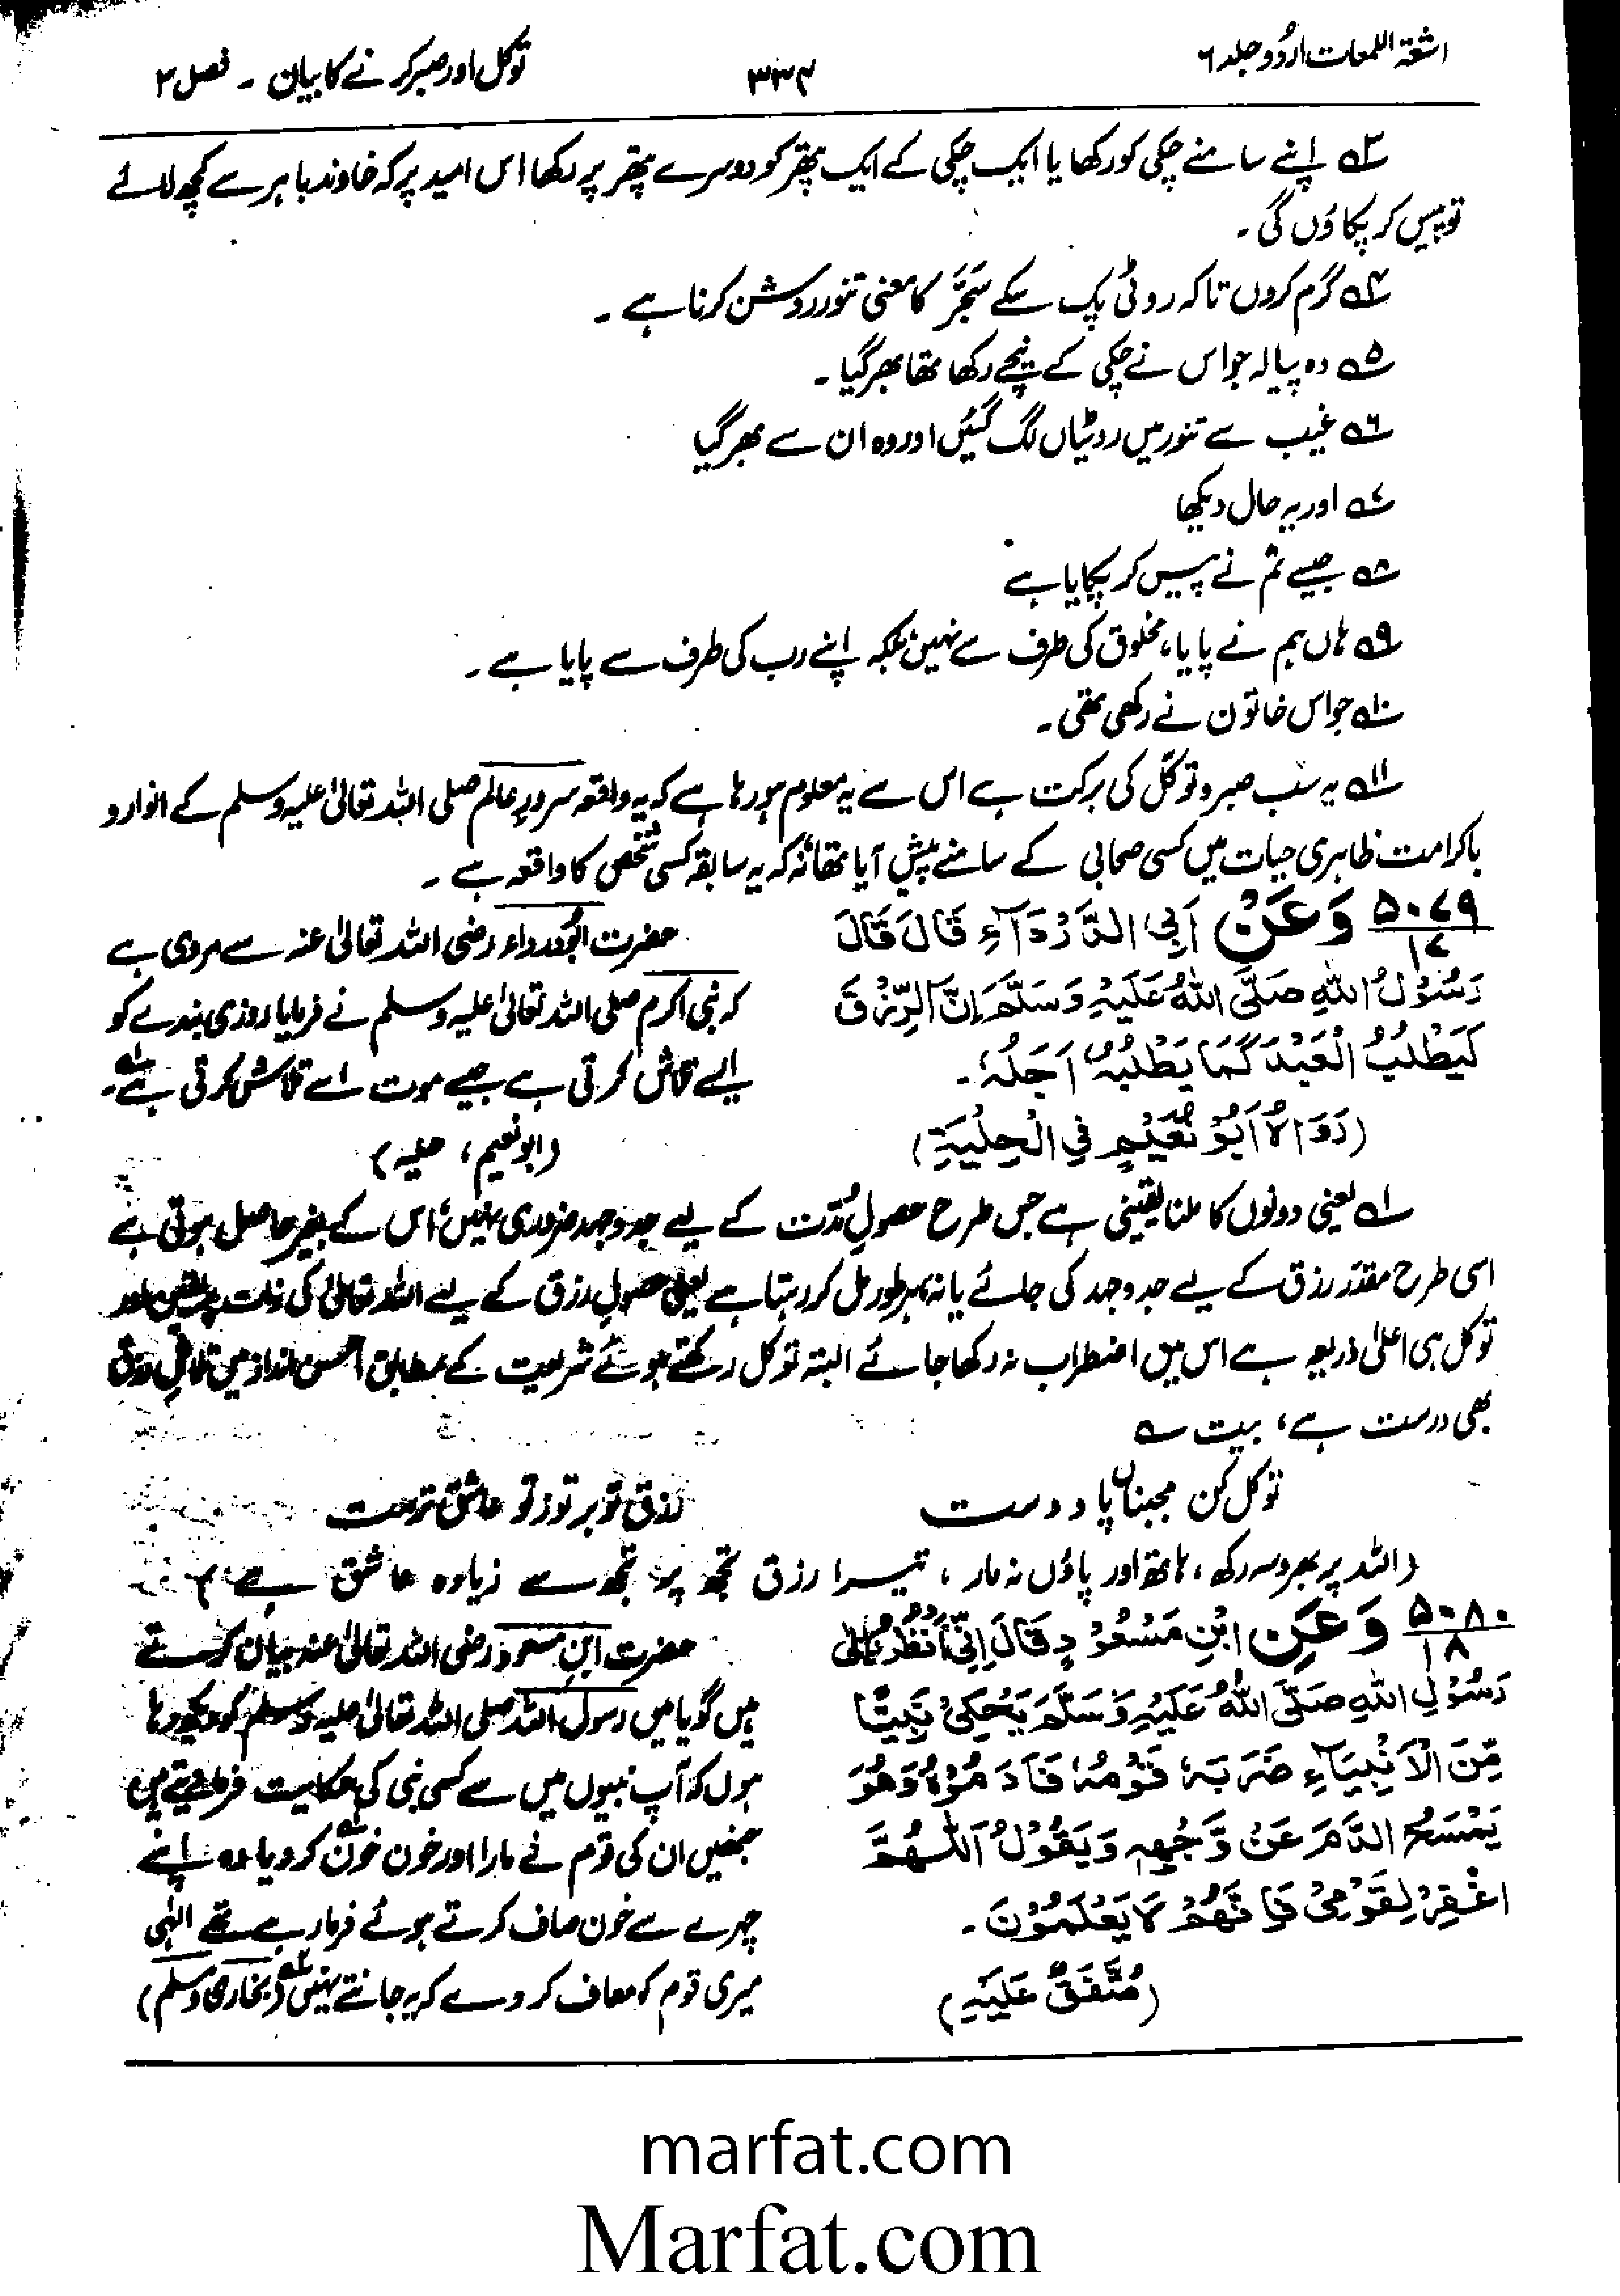 اشعۃ اللمعات اردو جلد ۶
۳۳۴
توکل اور صبر کرنے کا بیان ۔ فصل ۲
۳؎ اپنے سامنے چکی کو رکھا یا ایک چکی کے ایک پتھر کو دوسرے پتھر پر رکھا اس امید پر کہ خاوند باہر سے کچھ لائے
تو پیس کر پکاؤں گی ۔
۴؎ گرم کروں تاکہ روٹی پک سکے سَجَّرَ کا معنی تنور روشن کرنا ہے ۔
۵؎ وہ پیالہ جو اس نے چکی کے نیچے رکھا تھا بھر گیا ۔
۶؎ غیب سے تنور میں روٹیاں لگ گئیں اور وہ ان سے بھر گیا
۷؎ اور یہ حال دیکھا
۸؎ جیسے تم نے پیس کر پکایا ہے
۹؎ ہاں ہم نے پایا، مخلوق کی طرف سے نہیں بلکہ اپنے رب کی طرف سے پایا ہے ۔
۱۰؎ جو اس خاتون نے رکھی تھی ۔
۱۱؎ یہ سب صبر و توکّل کی برکت ہے اس سے یہ معلوم ہو رہا ہے کہ یہ واقعہ سرورِ عالم صلی اللہ تعالیٰ علیہ وسلم کے انوار و
باکرامت ظاہری حیات میں کسی صحابی کے سامنے پیش آیا تھا نہ کہ یہ سابقہ کسی شخص کا واقعہ ہے ۔
۵۰۷۹/۱۷ وَعَنْ اَبِی الدَّرْدَآءِ قَالَ قَالَ
رَسُوْلُ اللهِ صَلَّى اللهُ عَلَيْهِ وَسَلَّمَ اِنَّ الرِّزْقَ
لَيَطْلُبُ الْعَبْدَ كَمَا يَطْلُبُهٗ اَجَلُهٗ ۔
(رَوَاهُ اَبُوْ نُعَيْمٍ فِي الْحِلْيَةِ)
حضرت ابودرداء رضی اللہ تعالیٰ عنہ سے مروی ہے
کہ نبی اکرم صلی اللہ تعالیٰ علیہ وسلم نے فرمایا روزی بندے کو
ایسے تلاش کرتی ہے جیسے موت اسے تلاش کرتی ہے ۱؎ ۔
(ابونعیم، حلیہ)
۱؎ یعنی دونوں کا ملنا یقینی ہے جس طرح حصولِ مُدّت کے لیے جدوجہد ضروری نہیں، اس کے بغیر حاصل ہوتی ہے
اسی طرح مقدر رزق کے لیے جدوجہد کی جائے یا نہ بہر طور مل کر رہتا ہے یعنی حصولِ رزق کے لیے اللہ تعالیٰ کی ذات پر یقین اور
توکل ہی اعلیٰ ذریعہ ہے اس میں اضطراب نہ رکھا جائے البتہ توکل رکھتے ہوئے شریعت کے مطابق احسن انداز میں تلاشِ رزق
بھی درست ہے، بیت ؎
توکل کن مجنباں پا و دست
رزق تو بر تو ز تو عاشق ترست
(اللہ پر بھروسہ رکھ، ہاتھ اور پاؤں نہ مار، تیسرا رزق تجھ پر تجھ سے زیادہ عاشق ہے)
۵۰۸۰/۱۸ وَعَنِ ابْنِ مَسْعُوْدٍ قَالَ كَاَنِّىْ اَنْظُرُ اِلٰى
رَسُوْلِ اللهِ صَلَّى اللهُ عَلَيْهِ وَسَلَّمَ يَحْكِىْ نَبِيًّا
مِّنَ الْاَنْبِيَآءِ ضَرَبَهٗ قَوْمُهٗ فَاَدْمَوْهُ وَهُوَ
يَمْسَحُ الدَّمَ عَنْ وَّجْهِهٖ وَيَقُوْلُ اَللّٰهُمَّ
اغْفِرْ لِقَوْمِىْ فَاِنَّهُمْ لَا يَعْلَمُوْنَ ۔
(مُتَّفَقٌ عَلَيْهِ)
حضرت ابنِ مسعود رضی اللہ تعالیٰ عنہ بیان کرتے
ہیں گویا میں رسول اللہ صلی اللہ تعالیٰ علیہ وسلم کو دیکھ رہا
ہوں کہ آپ نبیوں میں سے کسی نبی کی حکایت فرماتے ہیں
جنھیں ان کی قوم نے مارا اور خون خون کر دیا ۱؎ وہ اپنے
چہرے سے خون صاف کرتے ہوئے فرما رہے تھے الٰہی
میری قوم کو معاف کر دے کہ یہ جانتے نہیں ۲؎ (بخاری و مسلم)
marfat.com
Marfat.com